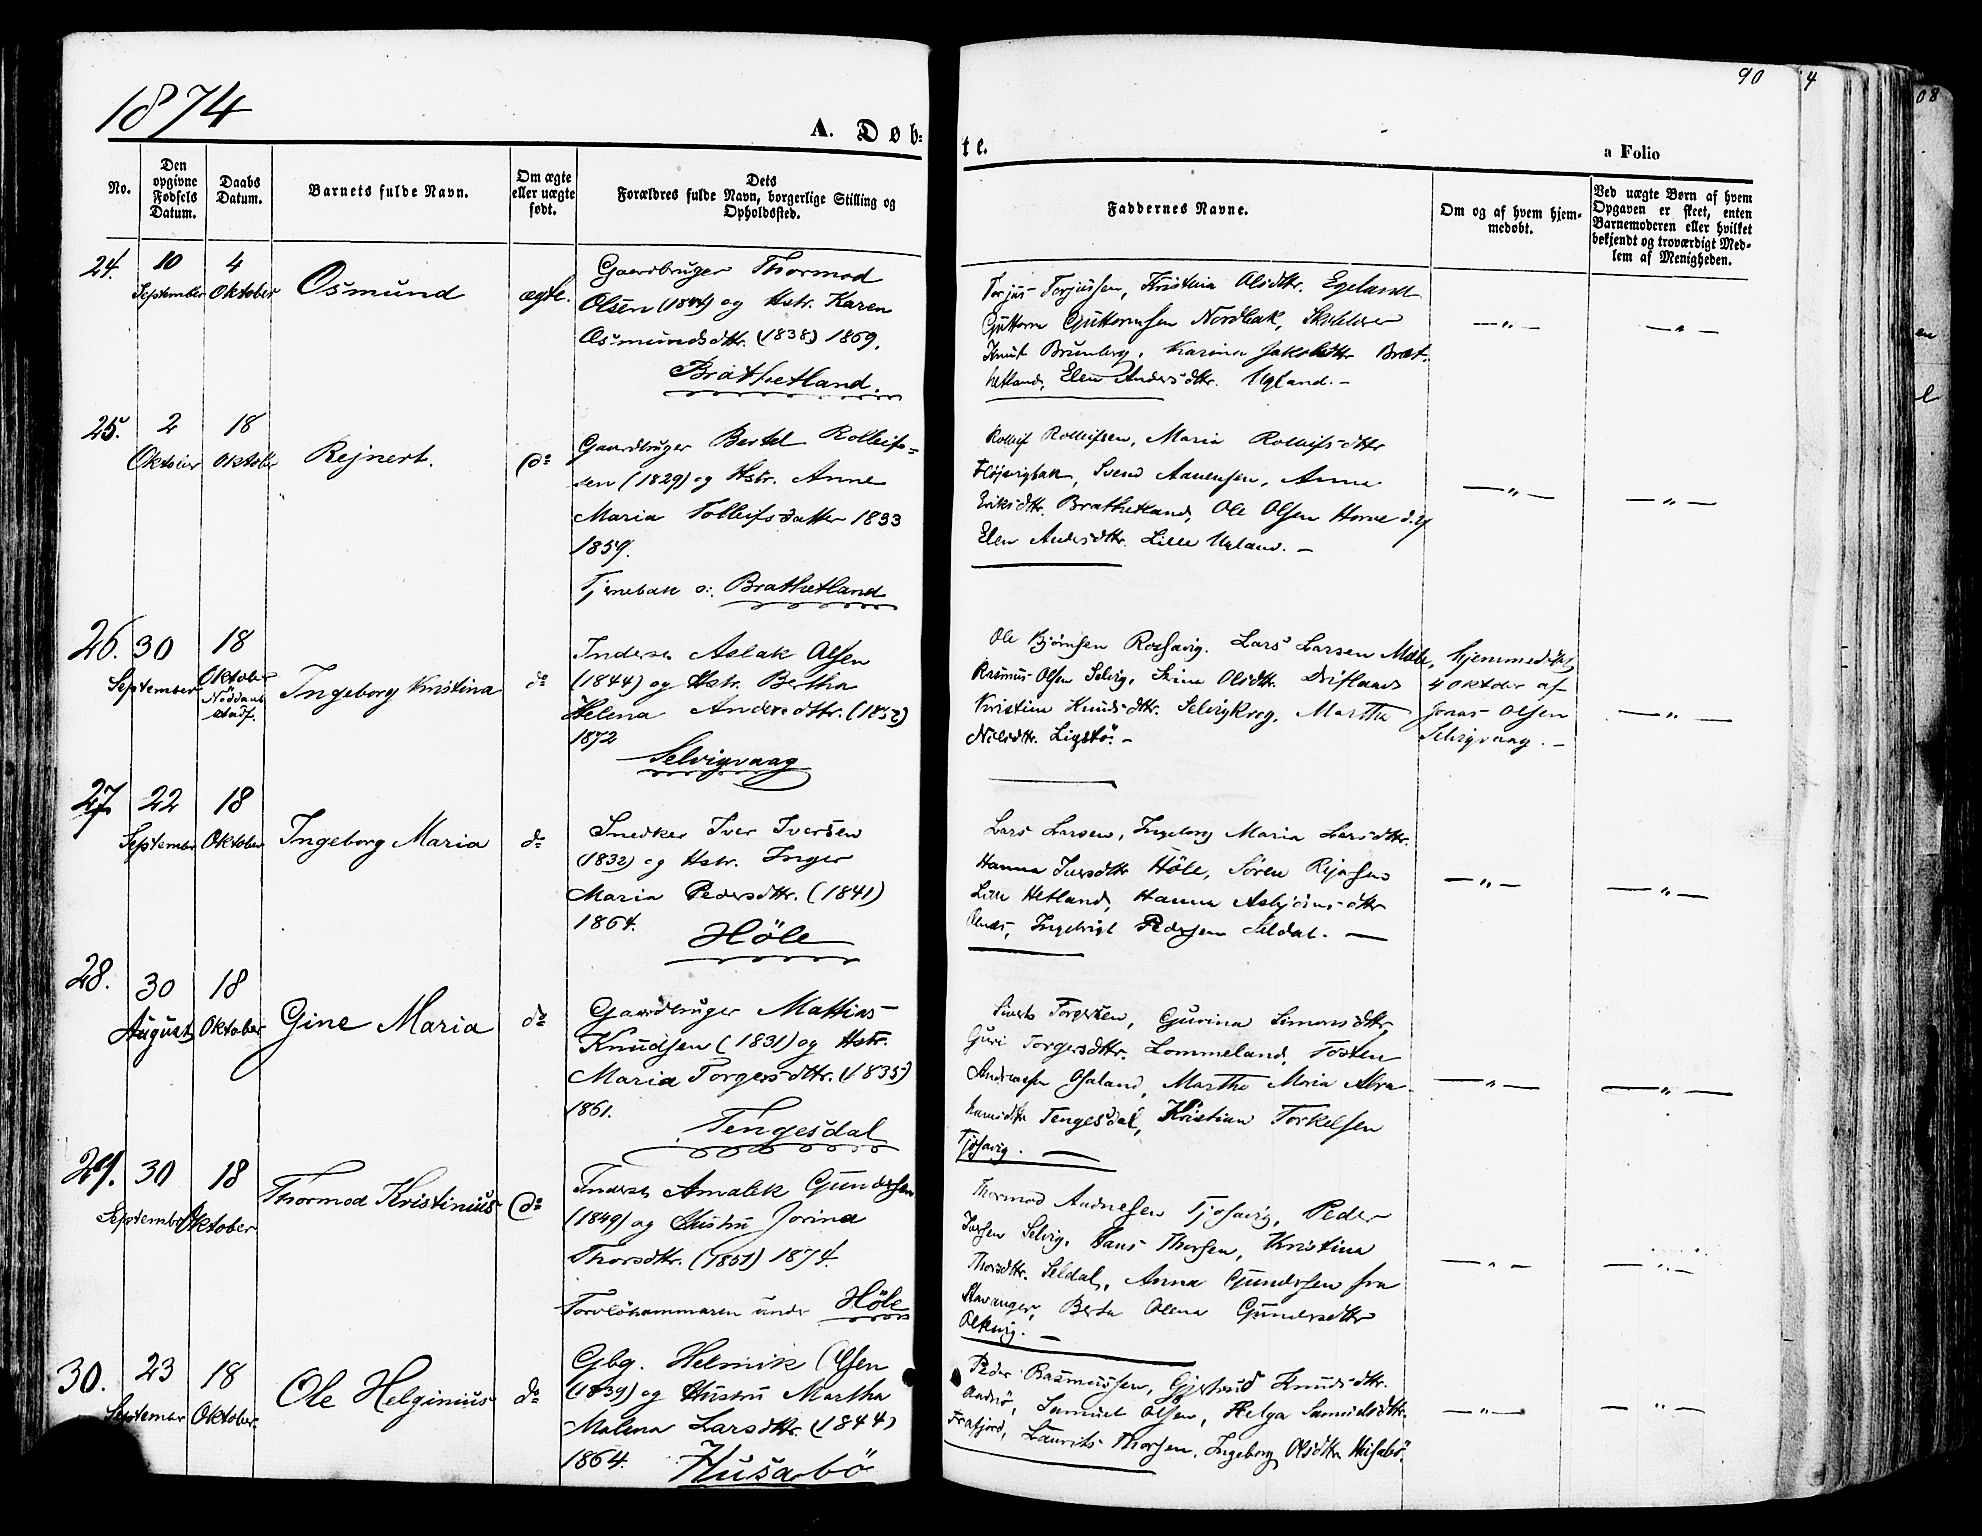 1874
A. Døb-
te.
90
4
08
a Folio
No.
Den opgivne Fødsels Datum.
Daabs Datum.
Barnets fulde Navn.
Om ægte eller uægte født.
Dets Forældres fulde Navn, borgerlige Stilling og Opholdssted.
Faddernes Navne.
Om og af hvem hjemmedøbt.
Ved uægte Børn af hvem Opgaven er skeet, enten Barnemoderen eller hvilket bekjendt og troværdigt Medlem af Menigheden.
24.
10
September
4
Oktober
Osmund
ægte.
Gaardbruger Thormod
Olsen (1844) og Hstr. Karen
Osmundsdttr. (1838) 1869.
Brathetland.
Torjus Torjussen, Kristina Olsdttr. Egeland
Guttorm Guttormsen Nordbak,
Knut Brunberg, Karina Jakobsdttr Brat-
hetland, Elen Andersdttr. Ugland. –
— " —
— " —
25.
2
Oktober
18
Oktober
Rejnert.
do
Gaardbruger Bertel Rolleifs-
sen (1829) og Hstr. Anne
Maria Tolleifsdatter 1833
1859.
Tjernebak o: Brathetland
Rolleif Rolleifsen, Maria Rolleifsdttr
Højevigbak, Svend Aanensen, Anne
Eriksdttr. Brathetland, Ole Olsen Horve
Elen Andersdttr. Lille Ugland. –
— " —
— " —
26.
30
September
18
Oktober
Nöddaab
stadf.
Ingeborg Kristina
do
Inderst Aslak Olsen
(1844) og Hstr. Bertha
Helena Andersdttr. (1852)
1872
Selvigvaag
Ole Bjørnsen Rossavig. Lars Larsen Mæle,
Rasmus Olsen Selvig, Stine Olsdttr. Drifland
Kristine Knudsdttr. Selvigkrog, Martha
Nilsdttr. Ligstö. –
hjemmedöbt
4 Oktober af
Jonas Olsen
Selvigvaag. –
— " —
27
22
September
18
Oktober
Ingeborg Maria
do
Snedker Iver Iversen
(1832) og Hstr. Inger
Maria Pedersdttr. (1841)
1864.
Höle
Lars Larsen, Ingeborg Maria Larsdttr.
Hanna Iversdttr Höle, Sören
Lille Hetland, Hanna Asbjörnsdttr
Ingebrigt Pedersen Seldal. —
— " —
— " —
28.
30
August
18
Oktober
Gine Maria
do
Gaardbruger Mathias
Knudsen (1831) og Hstr.
Maria Torgersdttr. (1835)
1861.
Tengesdal
Sivert Torgersen, Gurina Simonsdttr,
Guri Torgersdttr. Lommeland, Tosten
Andreassen Osaland, Martha Maria Abra-
hamsdttr Tengesdal, Kristian Torkelsen
Tjösavig. —
— " —
— " —
29.
30
September
18
Oktober
Thormod Kristinius
do
Inderst Amalek Gundersen
(1849) og Hustru Jorina
Thorsdttr. (1851) 1874.
Torvlöhammaren under Höle
Thormod Audnesen Tjösavig, Peder
Iversen Selvig, Hans Thorsen, Kristina
Thorsdttr. Seldal, Anna Gundersen fra
Stavanger, Berta Olena Gundersdttr
Olkvig. —
— " —
— " —
30.
23
September
18
Oktober
Ole Helginius
do
Gbg. Helmik Olsen
(1839) og Hustru Martha
Malena Larsdttr. (1844)
1864.
Husabö
Peder Rasmussen, Gjertrud Knudsdttr.
Aadnö, Samuel Olsen, Helga Samuelsdttr.
Frafjord, Laurits Thorsen, Ingeborg Olsdttr. Husabö.
— " —
— " —